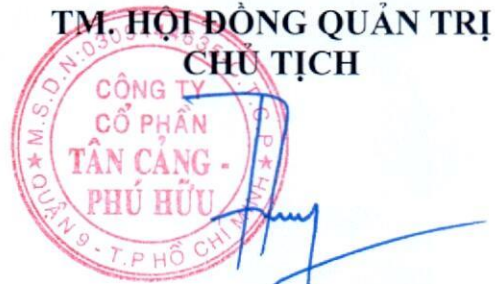 TM. HỘI ĐỒNG QUẢN TRỊ
CHỦ TỊCH
CÔNG TY
CỔ PHẦN
TÂN CẢNG -
PHÚ HỮU
QUẬN 9 - T.P HỒ CHÍ MINH